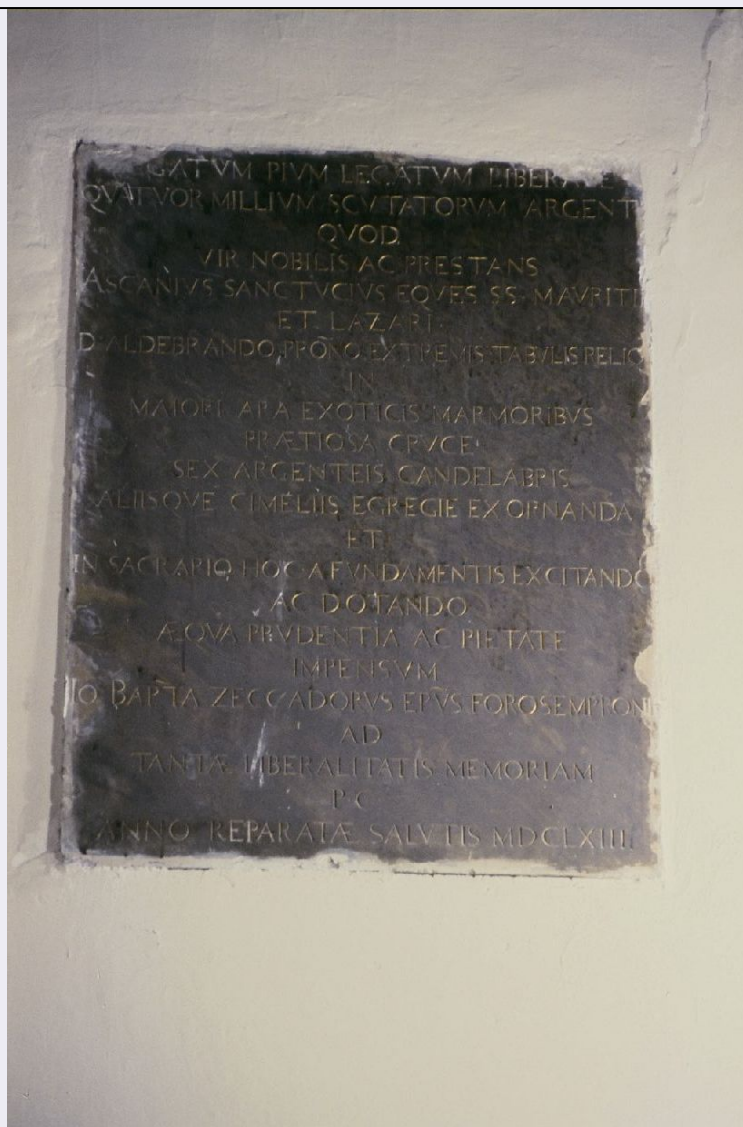 LEGATVM PIVM LEGATVM LIBERALE
QVATVOR MILLIVM SCVTATORVM ARGENT
QVOD
VIR NOBILIS AC PRESTANS
ASCANIVS SANCTVCIVS EQVES SS. MAVRITII
ET LAZARI
D. ALDEBRANDO, PRONO, EXTREMIS TABVLIS RELIQ
IN
MAIORI ARA EXOTICIS MARMORIBVS
PRÆTIOSA CRVCE
SEX ARGENTEIS CANDELABRIS
ALIISQVE CIMELIIS EGREGIE EXORNANDA
ET
IN SACRARIO HOC A FVNDAMENTIS EXCITANDO
AC DOTANDO
ÆQVA PRVDENTIA AC PIETATE
IMPENSVM
IO BAPTA ZECCADORVS EPVS FOROSEMPRONII
AD
TANTÆ LIBERALITATIS MEMORIAM
P C
ANNO REPARATÆ SALVTIS MDCLXIII